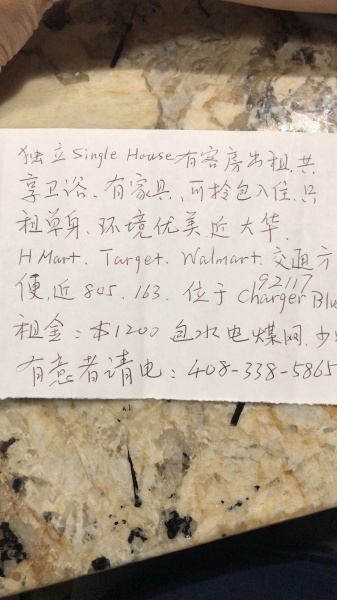 独立Single House有客房出租.共
享卫浴、有家具、可拎包入住.只
租单身.环境优美.近大华.
H Mart. Target. Walmart.交通方
便,近805.163. 位于Charger Blu
92117
租金:本1200 包水电煤网.少
有意者请电:408-338-5865